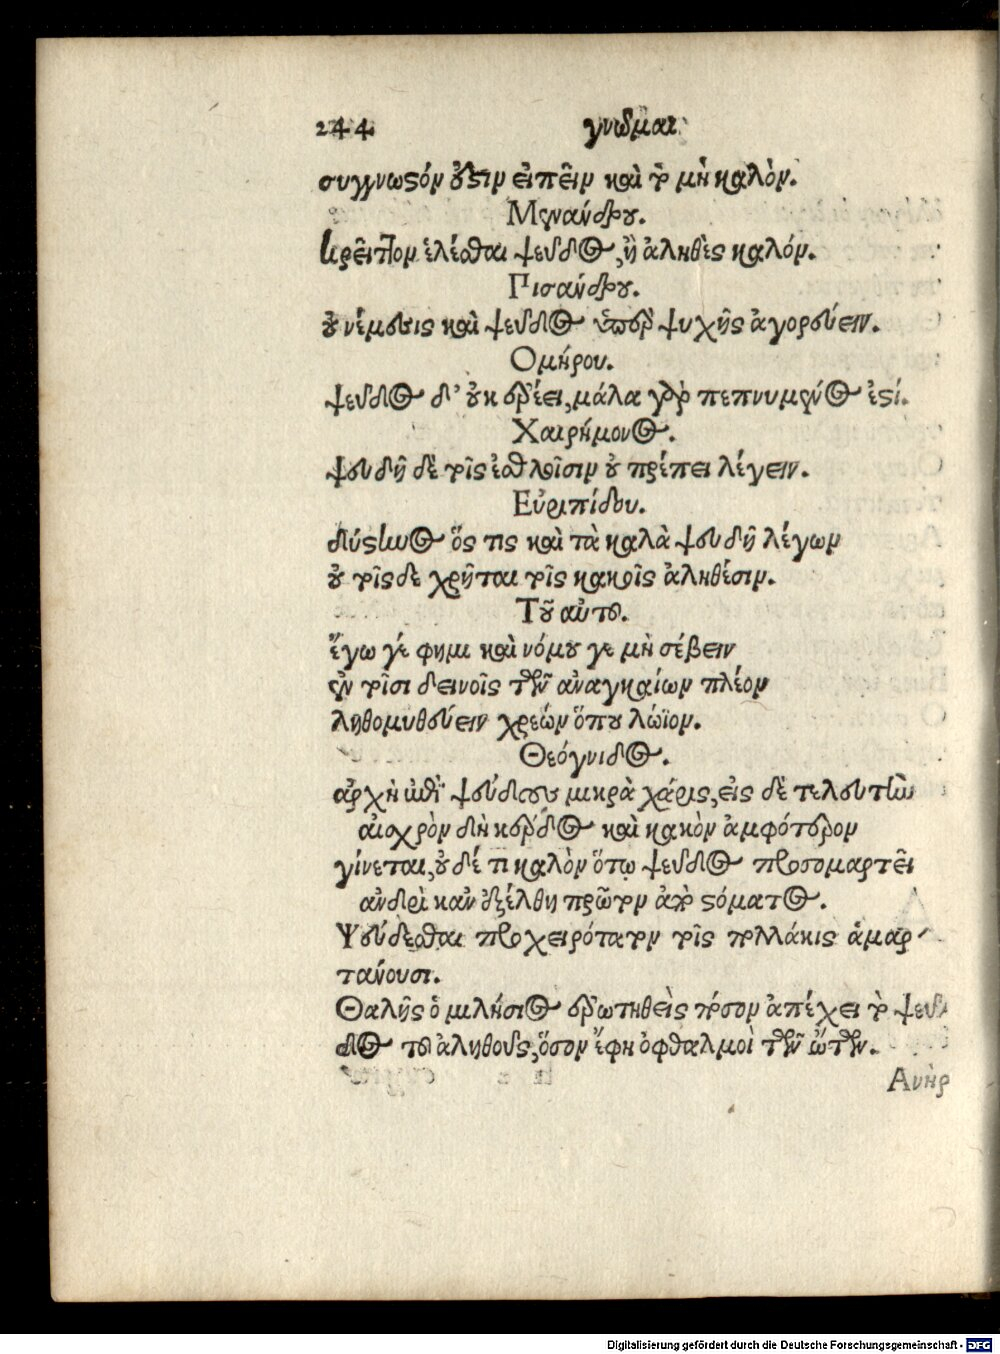 244 γνῶμαι
συγγνωστόν ἐστιν εἰπεῖν καὶ τὸ μὴ καλὸν.
Μενάνδρου.
κρεῖττον ἑλέσθαι ψεῦδος, ἢ ἀληθὲς καλόν.
Πισάνδρου.
οὐ νέμεσις καὶ ψεῦδος ὑπὲρ ψυχῆς ἀγορεύειν.
Ομήρου.
ψεῦδος δ' οὐκ ἐρέει, μάλα γὰρ πεπνυμένος ἐστί.
Χαιρήμονος.
ψευδῆ δὲ τοῖς ἐσθλοῖσιν οὐ πρέπει λέγειν.
Εὐριπίδου.
δύστηνος ὅς τις καὶ τὰ καλὰ ψευδῆ λέγων
οὐ τοῖσδε χρῆται τοῖς κακοῖς ἀληθέσιν.
Τοῦ αὐτοῦ.
ἔγω γέ φημι καὶ νόμου γε μὴ σέβειν
ἐν τοῖσι δεινοῖς τῶν ἀναγκαίων πλέον
ληθομυθεύειν χρεών ὅπου λώϊον.
Θεόγνιδος.
ἀρχὴ ἐπὶ ψεύδους μικρὰ χάρις, εἰς δὲ τελευτὴν
αἰσχρὸν δὴ κέρδος καὶ κακὸν ἀμφότερον
γίνεται, οὐδέ τι καλὸν ὅτῳ ψεῦδος προσομαρτεῖ
ἀνδρὶ κἂν ἐξέλθῃ πρῶτον ἀπὸ στόματος.
Ψεύδεσθαι προχειρότατον τοῖς πολλάκις ἁμαρ-
τάνουσι.
Θαλῆς ὁ μιλήσιος ἐρωτηθεὶς πόσον ἀπέχει τὸ ψεῦ-
δος τοῦ ἀληθοῦς, ὅσον ἔφη ὀφθαλμοὶ τῶν ὤτων.
Ανὴρ
Digitalisierung gefördert durch die Deutsche Forschungsgemeinschaft - DFG